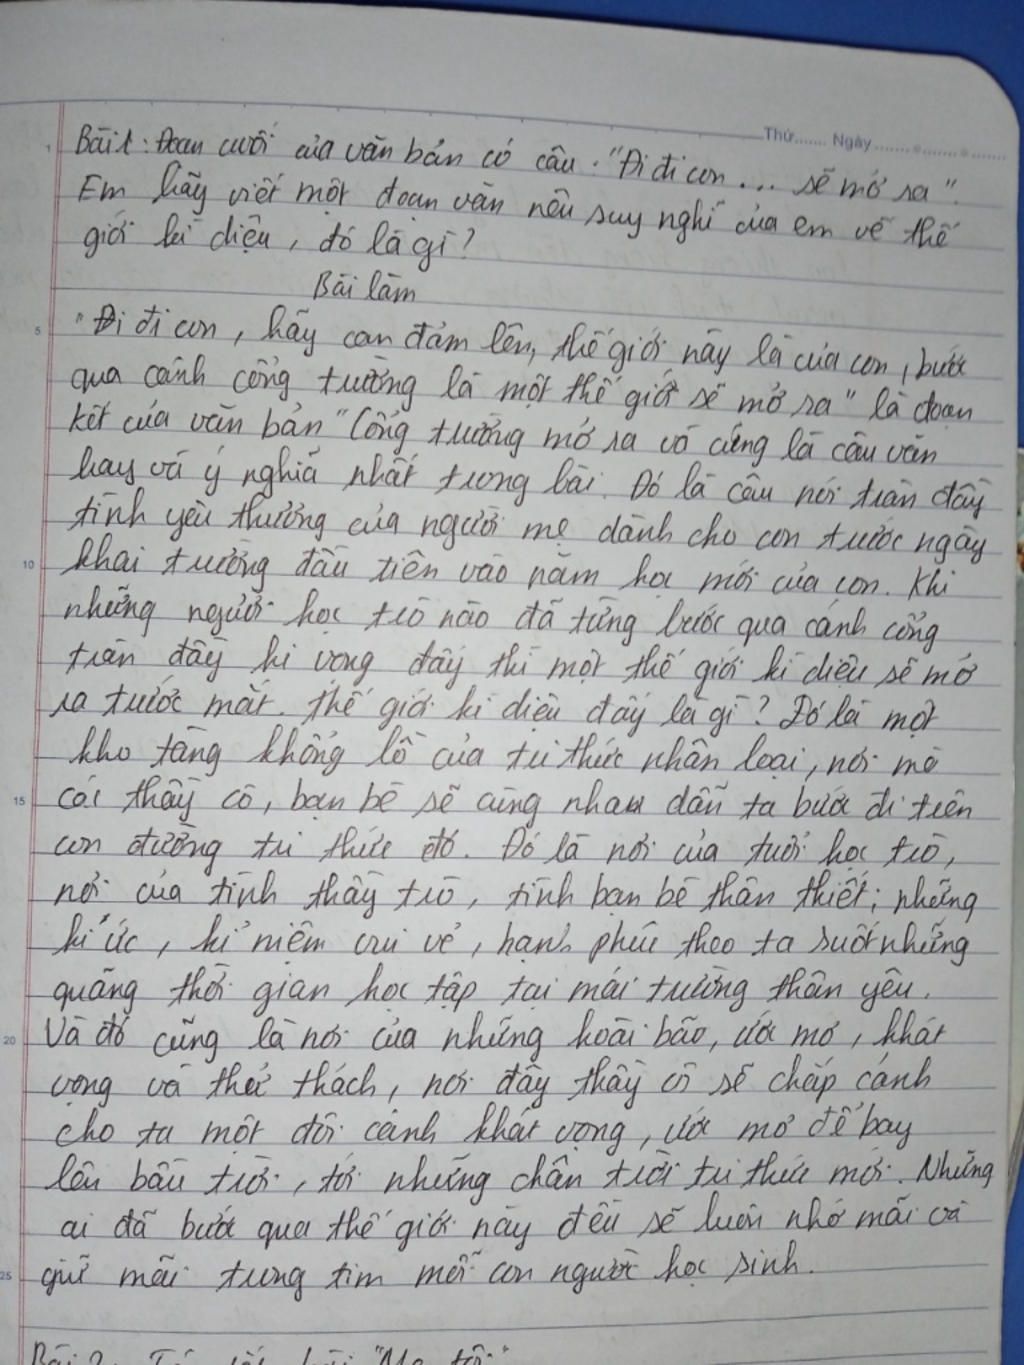 Thứ....... Ngày.....................
Bài 1: Đoạn cuối của văn bản có câu: "Đi đi con ... sẽ mở ra".
Em hãy viết một đoạn văn nêu suy nghĩ của em về thế
giới kì diệu, đó là gì?
Bài làm
"Đi đi con, hãy can đảm lên, thế giới này là của con, bước
qua cánh cổng trường là một thế giới sẽ mở ra" là đoạn
kết của văn bản "Cổng trường mở ra và cũng là câu văn
hay và ý nghĩa nhất trong bài. Đó là câu nói tràn đầy
tình yêu thương của người mẹ dành cho con trước ngày
khai trường đầu tiên vào năm học mới của con. Khi
những người học trò nào đã từng bước qua cánh cổng
tràn đầy hi vọng đấy thì một thế giới kì diệu sẽ mở
ra trước mắt. Thế giới kì diệu đấy là gì? Đó là một
kho tàng khổng lồ của tri thức nhân loại, nơi mà
các thầy cô, bạn bè sẽ cùng nhau dẫn ta bước đi trên
con đường tri thức đó. Đó là nơi của tuổi học trò,
nơi của tình thầy trò, tình bạn bè thân thiết; những
kí ức, kỉ niệm vui vẻ, hạnh phúc theo ta suốt những
quãng thời gian học tập tại mái trường thân yêu.
Và đó cũng là nơi của những hoài bão, ước mơ, khát
vọng và thử thách, nơi đây thầy cô sẽ chắp cánh
cho ta một đôi cánh khát vọng, ước mơ để bay
lên bầu trời, tới những chân trời tri thức mới. Những
ai đã bước qua thế giới này đều sẽ luôn nhớ mãi và
giữ mãi trong tim mỗi con người học sinh.